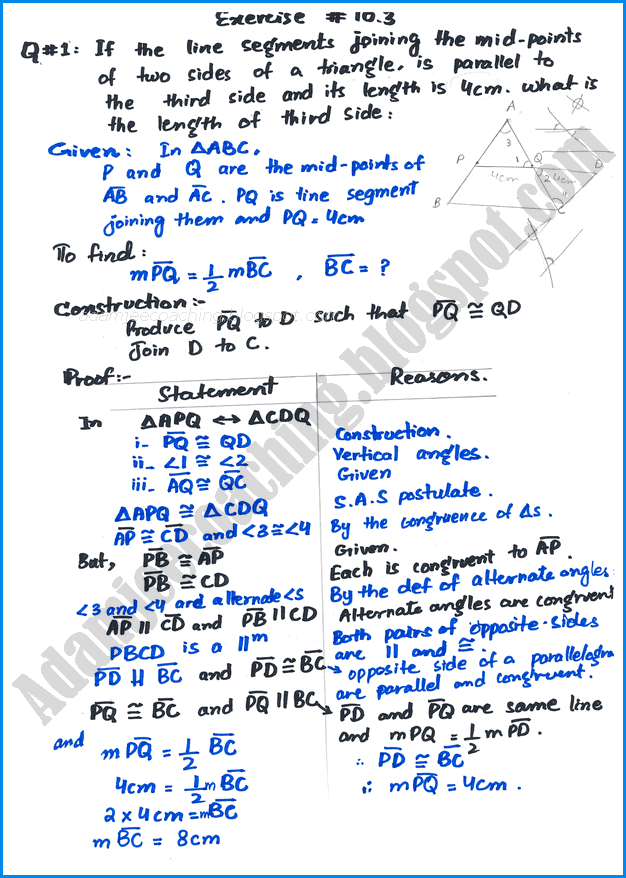 Exercise # 10.3
Q#1: If the line segments joining the mid-points
of two sides of a triangle. is parallel to
the third side and its length is 4cm. what is
the length of third side:
Given: In ΔABC,
P and Q are the mid-points of
A̅B̅ and A̅C̅. PQ is line segment
joining them and PQ = 4cm
A
3
P
1
Q
D
4cm
2
4cm
B
C
To find:
mP̅Q̅ = 1/2 mB̅C̅ , B̅C̅ = ?
Construction:-
adamjeecoaching.blogspot.com
Produce P̅Q̅ to D such that P̅Q̅ ≅ QD
Join D to C.
Proof:-
Statement
Reasons.
In ΔAPQ ↔ ΔCDQ
i- P̅Q̅ ≅ QD
Construction.
ii- <1 ≅ <2
Vertical angles.
iii- A̅Q̅ ≅ Q̅C̅
Given
ΔAPQ ≅ ΔCDQ
S.A.S postulate.
A̅P̅ ≅ C̅D̅ and <3≅<4
By the congruence of Δs.
But, P̅B̅ ≅ A̅P̅
Given.
P̅B̅ ≅ CD
Each is congruent to A̅P̅.
<3 and <4 are alternate <s
By the def of alternate angles
A̅P̅ || C̅D̅ and P̅B̅ || CD
Alternate angles are congruent
PBCD is a ||m
Both pairs of opposite sides
are || and ≅.
P̅D̅ || B̅C̅ and P̅D̅ ≅ B̅C̅
→ opposite side of a parallelogram
are parallel and congruent.
P̅Q̅ ≅ B̅C̅ and P̅Q̅ || BC
→ P̅D̅ and P̅Q̅ are same line
and mPQ = 1/2 mP̅D̅.
and mP̅Q̅ = 1/2 B̅C̅
∴ P̅D̅ ≅ B̅C̅
4cm = 1/2 mB̅C̅
∴ mP̅Q̅ = 4cm.
2 x 4cm = mB̅C̅
mB̅C̅ = 8cm
Adamjeecoaching.blogspot.com